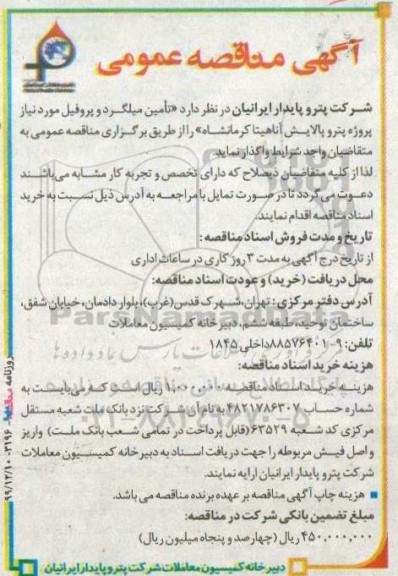 آگهی مناقصه عمومی
شرکت پترو پایدار ایرانیان در نظر دارد «تأمین میلگرد و پروفیل مورد نیاز
پروژه پترو پالایش آناهیتا کرمانشاه» را از طریق برگزاری مناقصه عمومی به
متقاضیان واجد شرایط واگذار نماید.
لذا از کلیه متقاضیان ذیصلاح که دارای تخصص و تجربه کار مشابه می‌باشند
دعوت می‌گردد تا در صورت تمایل با مراجعه به آدرس ذیل نسبت به خرید
اسناد مناقصه اقدام نمایند.
تاریخ و مدت فروش اسناد مناقصه:
از تاریخ درج آگهی به مدت ۳ روز کاری در ساعات اداری
محل دریافت (خرید) و عودت اسناد مناقصه:
آدرس دفتر مرکزی: تهران، شهرک قدس (غرب)، بلوار دادمان، خیابان شفق،
ساختمان توحید، طبقه ششم، دبیرخانه کمیسیون معاملات
تلفن: ۹-۸۸۵۷۶۴۰۱ داخلی ۱۸۴۵
هزینه خرید اسناد مناقصه:
هزینه خرید اسناد مناقصه ریال است که می‌بایست به
شماره حساب ۴۸۲۱۷۸۶۳۰۷ به نام آن شرکت نزد بانک ملت شعبه مستقل
مرکزی کد شعبه ۶۳۵۲۹ (قابل پرداخت در تمامی شعب بانک ملت) واریز
و اصل فیش مربوطه را جهت دریافت اسناد به دبیرخانه کمیسیون معاملات
شرکت پترو پایدار ایرانیان ارایه نمایند.
هزینه چاپ آگهی مناقصه بر عهده برنده مناقصه می باشد.
مبلغ تضمین بانکی شرکت در مناقصه:
۴۵۰,۰۰۰,۰۰۰ ریال (چهارصد و پنجاه میلیون ریال)
دبیرخانه کمیسیون معاملات شرکت پترو پایدار ایرانیان
روزنامه مناقصه ۳۱۹۶ - ۹۹/۱۲/۱۰
ParsNamadData